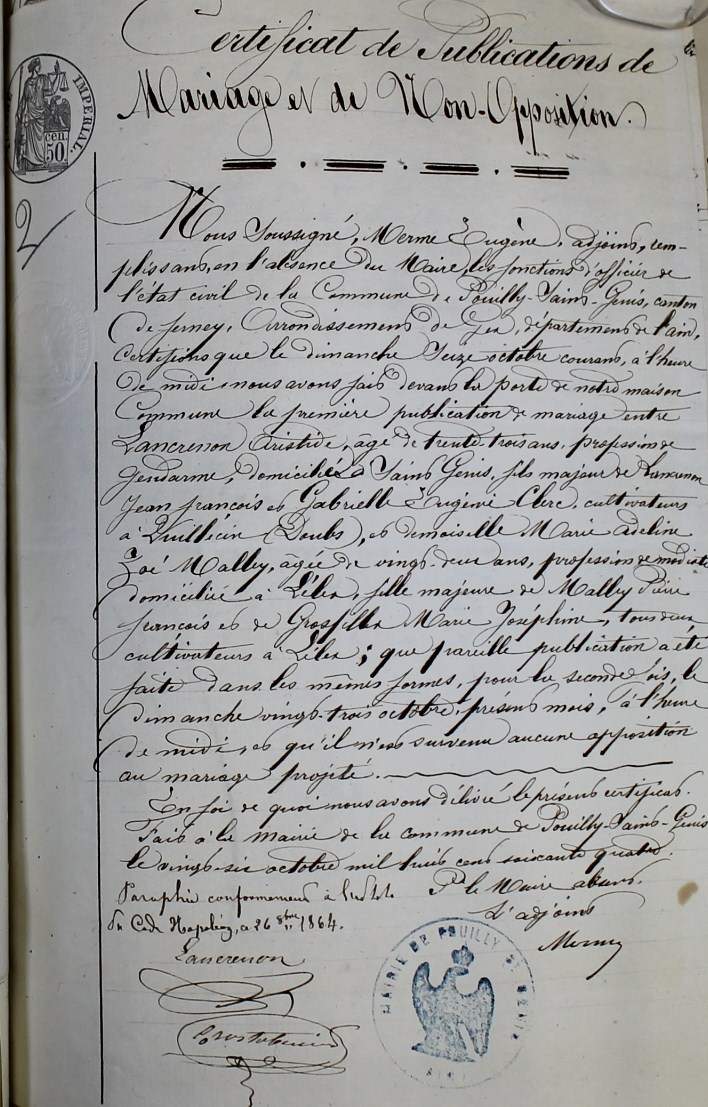 Certificat de Publications de
Mariage et de Non-Opposition.
IMPERIAL.
50 cen.
2
Nous Soussigné, Merme Eugène, adjoint, rem-
plissant, en l'absence du Maire, les fonctions d'officier de
l'état civil de la Commune de Pouilly-Saint-Genis, canton
de ferney, Arrondissement de Gex, département de l'ain,
Certifions que le dimanche Seize octobre courant, à l'heure
de midi, nous avons fait devant la porte de notre maison
Commune la première publication de mariage entre
Lancrenon Aristide, âgé de trente trois ans, profession de
gendarme, domicilié à Saint Genis, fils majeur de Lancrenon
Jean françois et Gabrielle Eugénie Clerc, cultivateurs
à (Doubs), et demoiselle Marie Adeline
Zoé Malley, âgée de vingt-deux ans, profession de modiste
domiciliée à Lélex, fille majeure de Malley Pierre
françois et de Grosfillex Marie Joséphine, tous deux
cultivateurs à Lélex; que pareille publication a été
faite dans les mêmes formes, pour la seconde fois, le
dimanche vingt-trois octobre, présent mois, à l'heure
de midi, et qu'il n'est survenu aucune opposition
au mariage projeté.
En foi de quoi nous avons délivré le présent certificat.
Fait à la mairie de la commune de Pouilly-Saint-Genis
le vingt-six octobre mil huit cent soixante quatre.
Pr le Maire absent.
L'adjoint
Merme
Paraphé conformément à
du Code Napoléon, le 26 8bre 1864.
Lancrenon
MAIRIE DE POUILLY ST GENIS
AIN